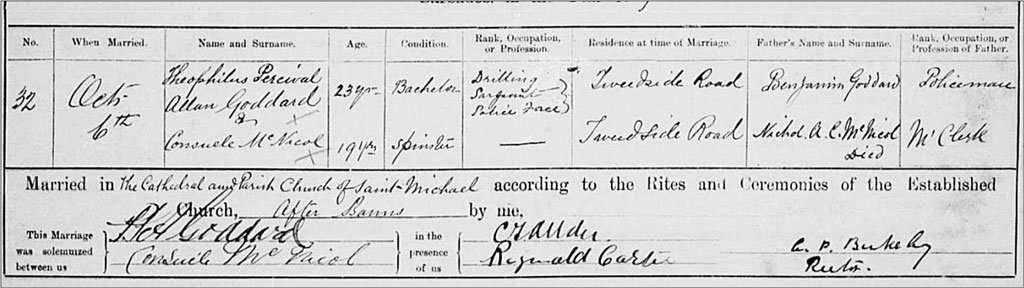 No. When Married. Name and Surname. Age. Condition. Rank, Occupation, or Profession. Residence at time of Marriage. Father's Name and Surname. Rank, Occupation, or Profession of Father.
32 Oct 6th
Theophilus Percival
Allan Goddard
&
Consuelo McNicol
23 yrs
19 yrs
Bachelor
Spinster
Drilling
Sargeant
Police Force
—
Tweedside Road
Tweedside Road
Benjamin Goddard
Nichol A. C. McNicol
Died
Policeman
M' Clerk
Married in The Cathedral and Parish Church of Saint Michael according to the Rites and Ceremonies of the Established
Church, After Banns by me,
This Marriage was solemnized between us
Goddard
Consuelo McNicol
in the presence of us
Reginald Carter
Rector.